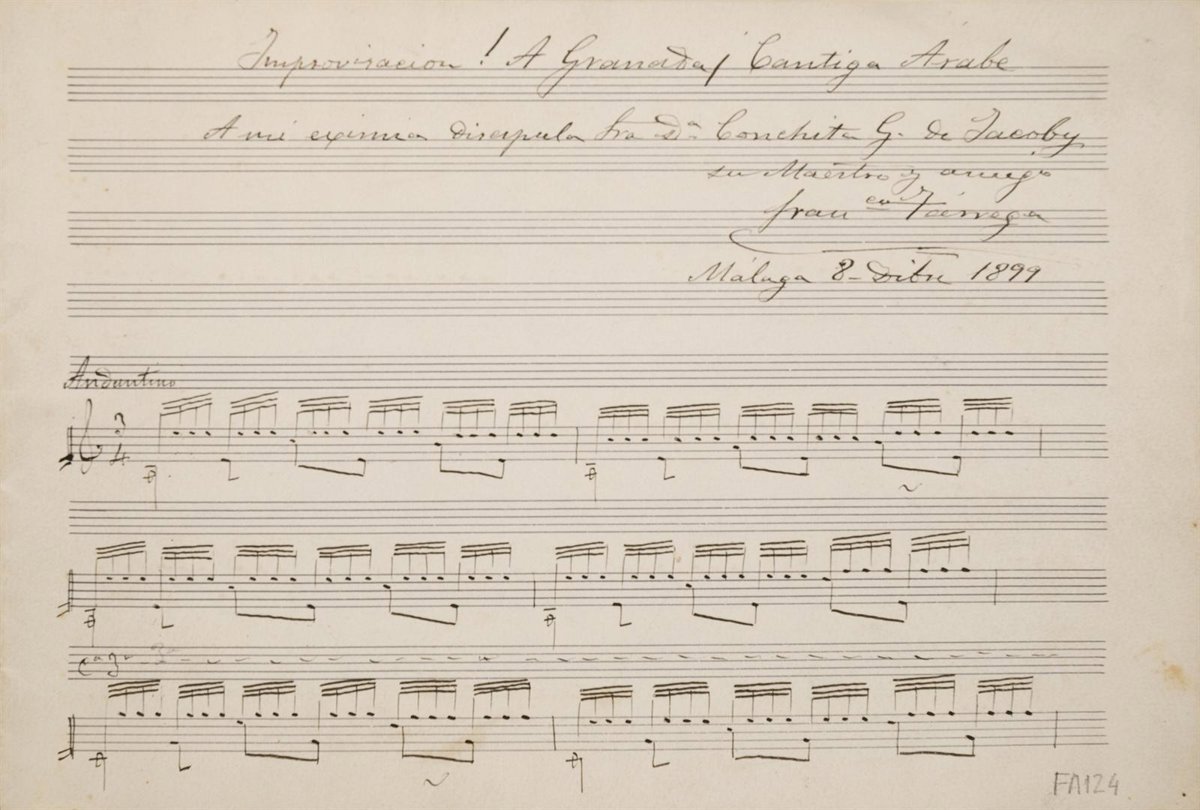 Improvisacion! A Granada! Cantiga Arabe
A mi eximia discipula Sra Dª Conchita G. de Jacoby
su Maestro y amigo
Franco Tárrega
Málaga 8 - Dibre 1899
Andantino
3
4
Cª 3ª
FA124